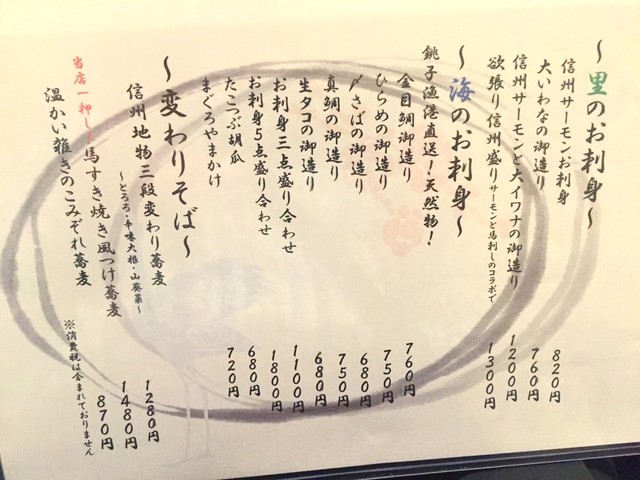 〜里のお刺身〜
信州サーモンお刺身 820円
大いわなの御造り 760円
信州サーモンと大イワナの御造り 1200円
欲張り信州盛り サーモンと馬刺しのコラボで 1300円
〜海のお刺身〜
銚子漁港直送!天然物!
金目鯛御造り 760円
ひらめの御造り 750円
〆さばの御造り 680円
真鯛の御造り 750円
生タコの御造り 680円
お刺身三点盛り合わせ 1100円
お刺身5点盛り合わせ 1800円
たこつぶ胡瓜 680円
まぐろやまかけ 720円
〜変わりそば〜
信州地物三段変わり蕎麦 1280円
〜とろろ・辛味大根・山葵菜〜
当店一押し!馬すき焼き風つけ蕎麦 1480円
温かい雑きのこみぞれ蕎麦 870円
※消費税は含まれておりません